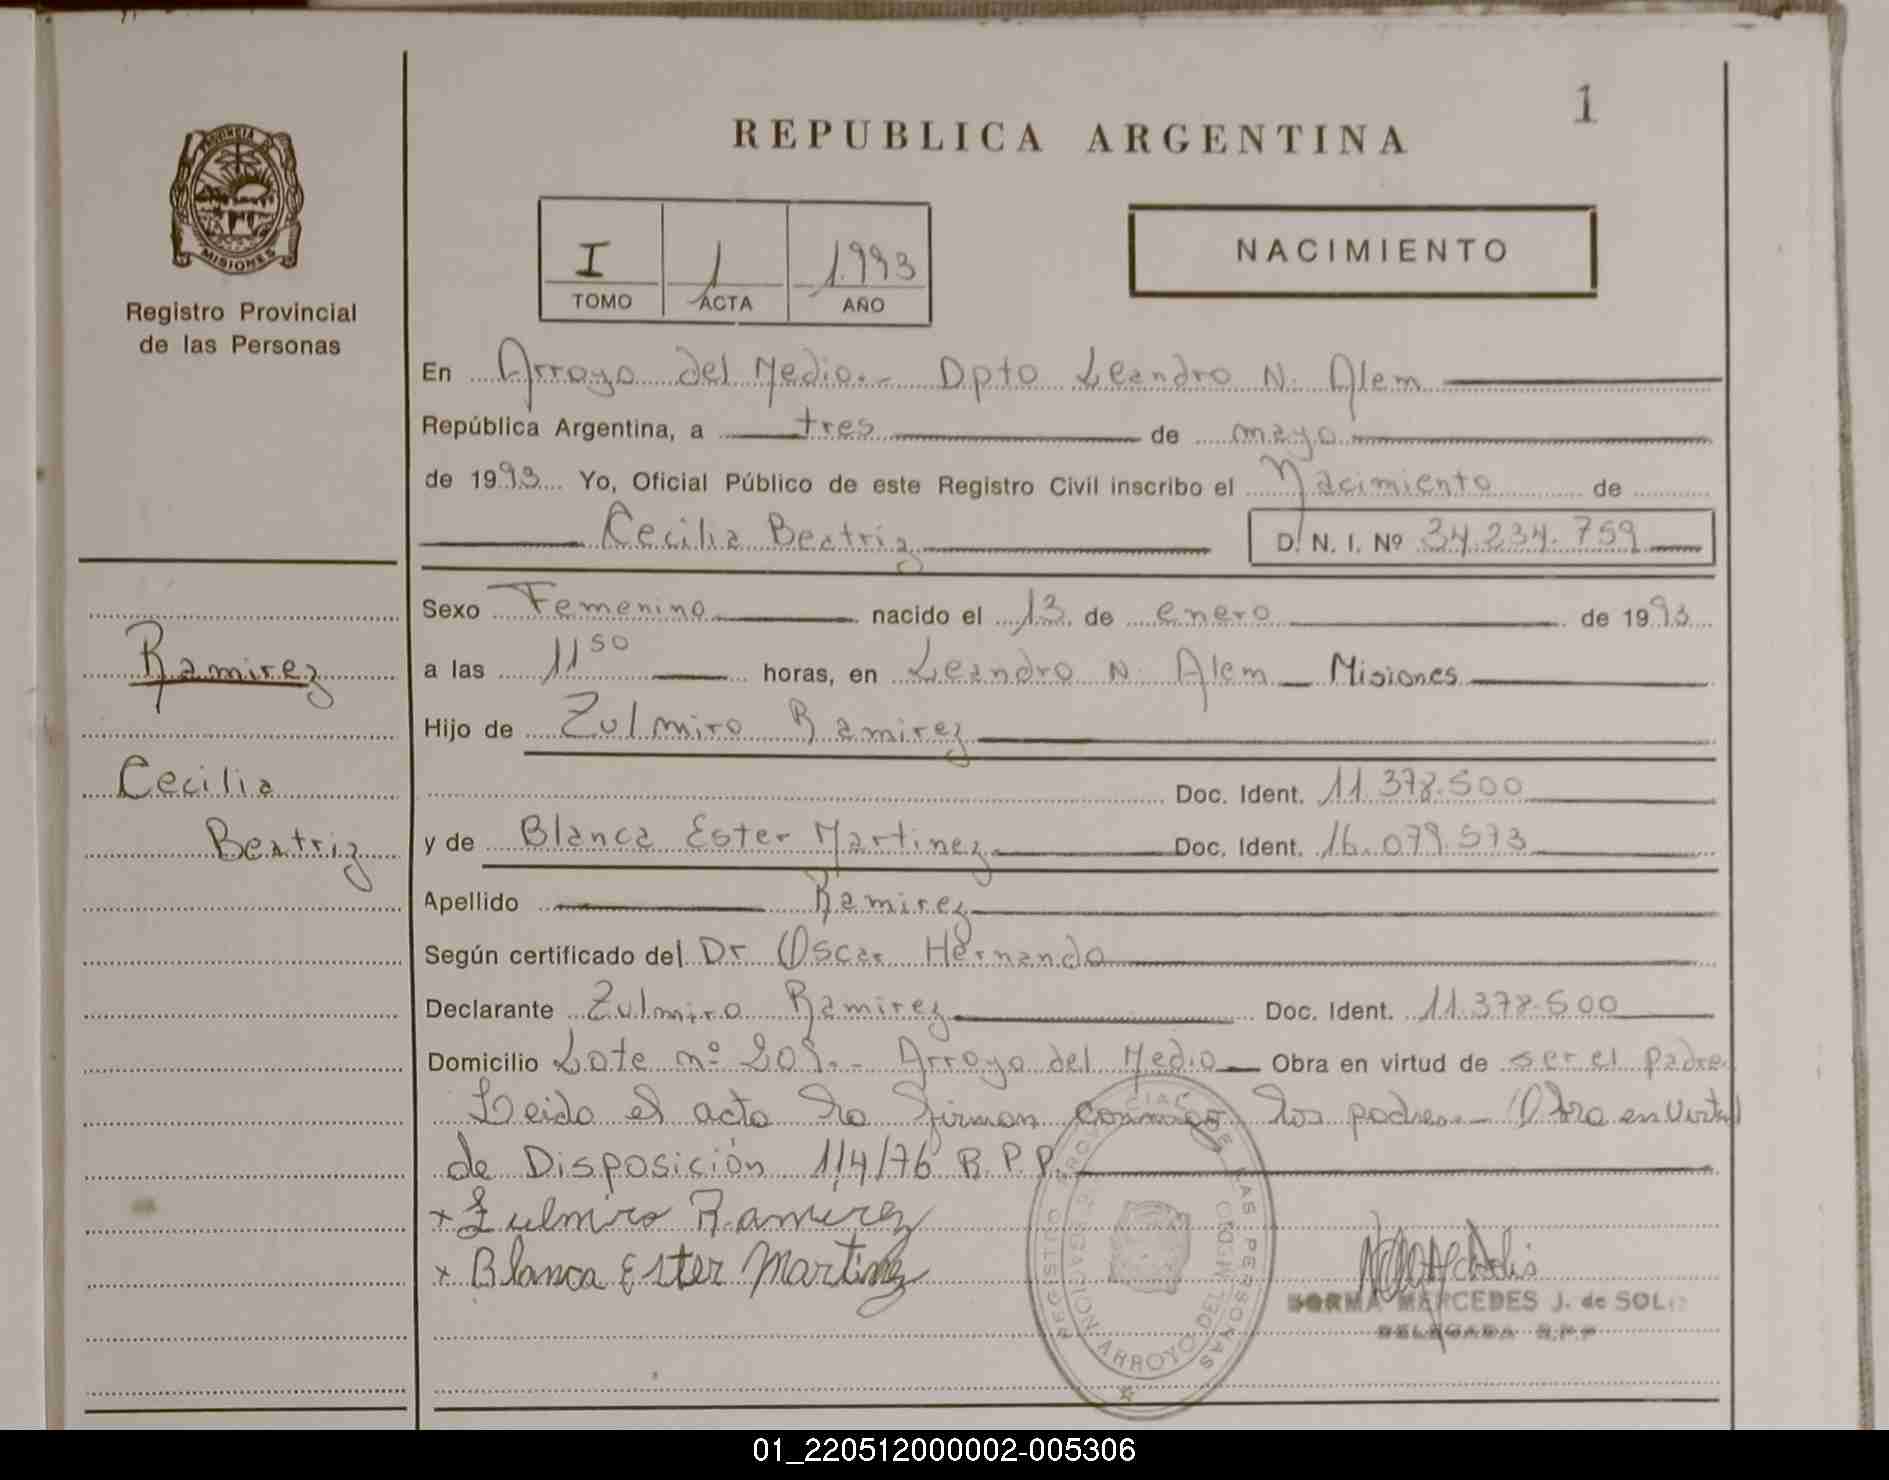 1
PROVINCIA DE
MISIONES
Registro Provincial
de las Personas
REPUBLICA ARGENTINA
I 1 1.993
TOMO ACTA AÑO
NACIMIENTO
En Arroyo del Medio.- Dpto Leandro N. Alem
República Argentina, a tres de mayo
de 1993 Yo, Oficial Público de este Registro Civil inscribo el Nacimiento de
Cecilia Beatriz D. N. I. Nº 34.234.759
Sexo Femenino nacido el 13 de enero de 1993
a las 11 50 horas, en Leandro N. Alem Misiones
Hijo de Zulmiro Ramirez
Doc. Ident. 11.378.500
y de Blanca Ester Martinez Doc. Ident. 16.079.573
Apellido Ramirez
Según certificado del Dr Oscar Hernando
Declarante Zulmiro Ramirez Doc. Ident. 11.378.500
Domicilio Lote nº 209.- Arroyo del Medio Obra en virtud de ser el padre
Leido el acta la firman conmigo los padres.- Obro en virtud
de Disposición 114/76 R.P.P.
x Zulmiro Ramirez
x Blanca Ester Martinez
Ramirez
Cecilia
Beatriz
REGISTRO PROVINCIAL DE LAS PERSONAS
ARROYO DEL MEDIO
NORMA MERCEDES J. de SOLIS
DELEGADA R.P.P
01_220512000002-005306